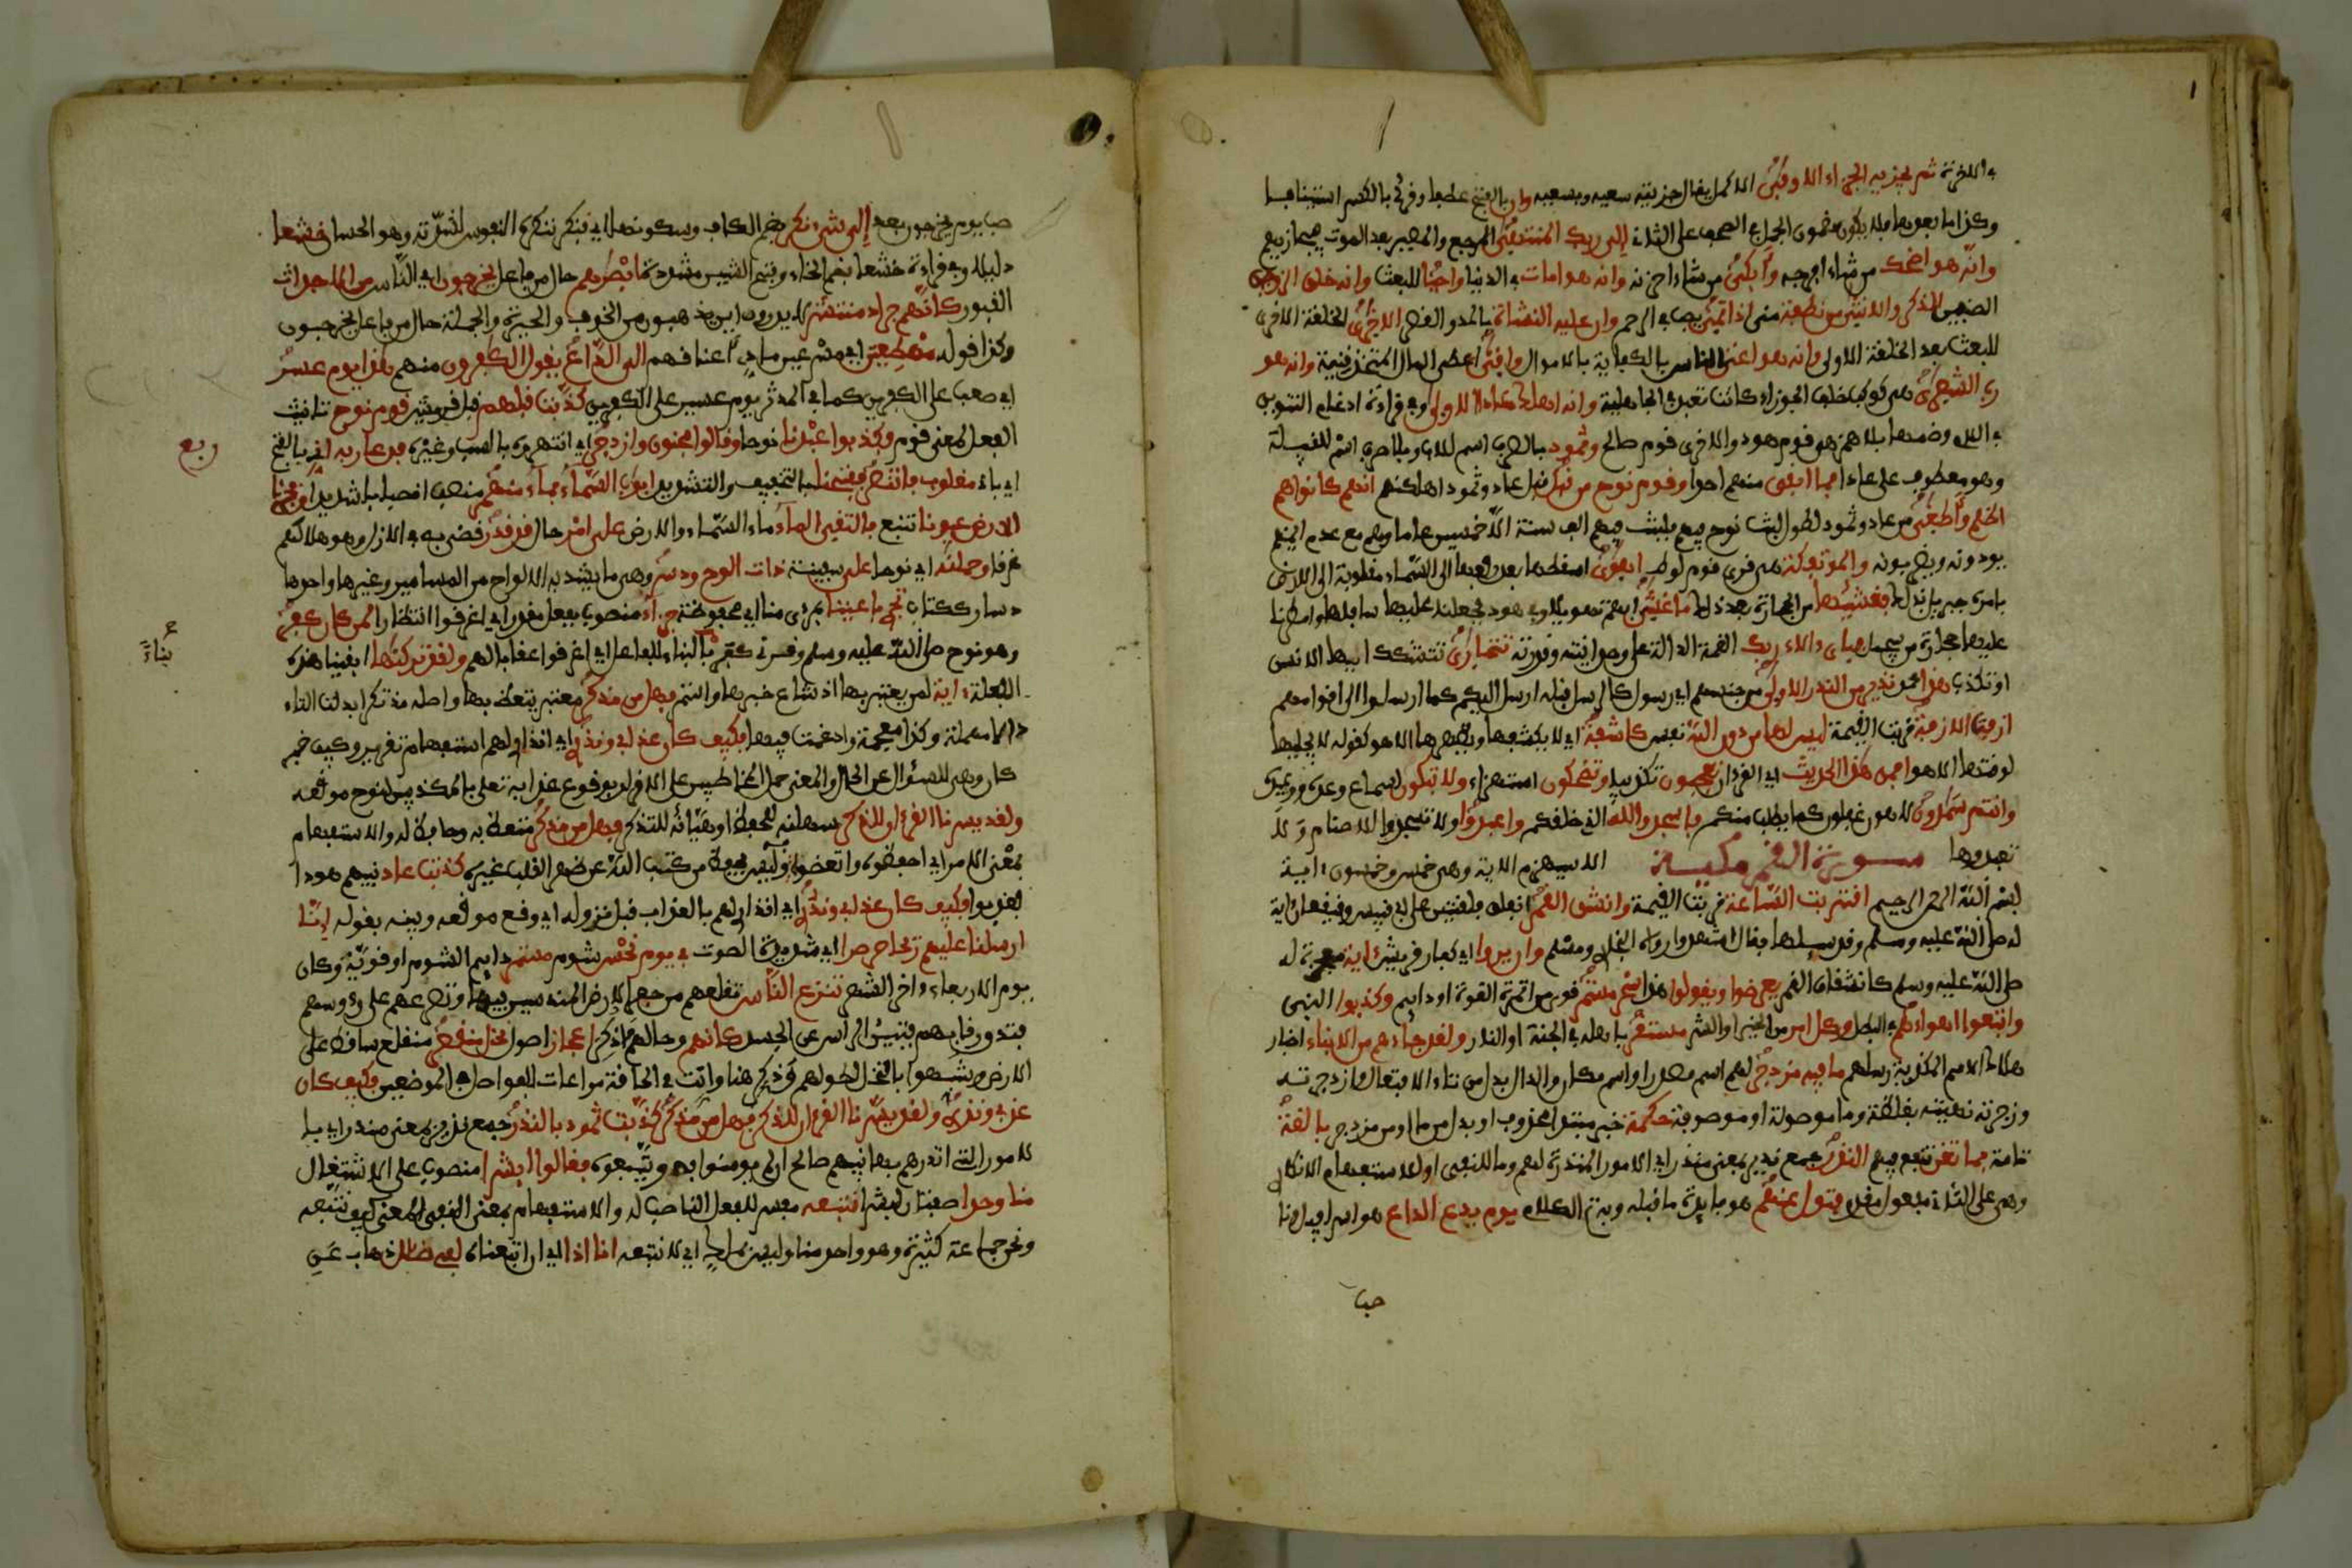 في الآخرة ثم يجزيه الجزاء الاوفى الاكمل يقال جزيته سعيه وبسعيه وان بالفتح عطفا وقرئ بالكسر استينافا
وكذا ما بعدها فلا يكون مضمون الجمل في الصحف على الثاني إلى ربك المنتهى المرجع والمصير بعد الموت فيجازيهم
وانه هو اضحك من شاء افرحه وأبكى من شاء احزنه وانه هو امات في الدنيا واحيا للبعث وانه خلق الزوجين
الصنفين الذكر والانثى من نطفة مني اذا تمنى تصب في الرحم وان عليه النشأة بالمد والقصر الاخرى الخلقة الاخرى
للبعث بعد الخلقة الاولى وانه هو اغنى الناس بالكفاية بالاموال واقنى اعطى المال المتخذ قنية وانه هو
رب الشعرى هي كوكب خلف الجوزاء كانت تعبد في الجاهلية وانه اهلك عادا الاولى وفي قراءة ادغام التنوين
في اللام وضمها بلا همز هي قوم هود والاخرى قوم صالح وثمود بالصرف اسم للاب وبلا صرف اسم للقبيلة
وهو معطوف على عادا فما ابقى منهم احدا وقوم نوح من قبل قبل عاد وثمود اهلكنهم انهم كانوا هم
اظلم وأطغى من عاد وثمود لطول لبث نوح فيهم فلبث فيهم الف سنة الا خمسين عاما وهم مع عدم ايمنهم
يوذونه ويضربونه والموتفكة هي قرى قوم لوط اهوى اسقطها بعد رفعها الى السماء مقلوبة الى الارض
بامره جبريل بذلك فغشيها من الحجارة بعد ذلك ما غشى ابهم تهويلا وفي هود فجعلنا عليها سافلها وامطرنا
عليها حجارة من سجيل فباي ءالاء ربك انعمه الدالة على وحدانيته وقدرته تتمارى تتشكك ايها الانسن
او تكذب هذا محمد نذير من النذر الاولى من جنسهم اي رسول كالرسل قبله ارسل اليكم كما ارسلوا الى اقوامهم
ازفت الازفة قربت القيمة ليس لها من دون الله نفس كاشفة اي لا يكشفها ويظهرها الا هو كقوله لا يجليها
لوقتها الا هو افمن هذا الحديث اي القرءان تعجبون تكذيبا وتضحكون استهزاء ولا تبكون لسماع وعده ووعيده
وانتم سمدون لاهون غفلون عما يطلب منكم فاسجدوا لله الذي خلقكم واعبدوا ولا تسجدوا للاصنام ولا
تعبدوها سورة القمر مكية الا سيهزم الاية وهي خمس وخمسون ءاية
بسم الله الرحمن الرحيم اقتربت الساعة قربت القيمة وانشق القمر انفلق فلقتين على ابي قبيس وقيقعان ءاية
له صلى الله عليه وسلم وقد سيلها فقال اشهدوا رواه البخاري ومسلم وان يروا اي كفار قريش ءاية معجزة له
صلى الله عليه وسلم كانشقاق القمر يعرضوا ويقولوا هذا سحر مستمر قوي من المرة القوة او دايم وكذبوا النبي
واتبعوا اهواءهم في البطل وكل امر من الخير او الشر مستقر باهله في الجنة او النار ولقد جاءهم من الانباء اخبار
هلاك الامم المكذبة رسلهم ما فيه مزدجر لهم اسم مصدر او اسم مكان والدال بدل من تاء الافتعال وازدجرته
وزجرته نهيته بغلظة وما موصولة او موصوفة حكمة خبر مبتدا محذوف او بدل من ما او من مزدجر بالغة
تامة فما تغن تنفع فيهم النذر جمع نذير بمعنى منذر اي الامور المنذرة لهم وما للنفي او للاستفهام الانكاري
وهي على الثاني مفعول مقدم فتول عنهم هو فايدة ما قبله وبه تم الكلام يوم يدع الداع هو اسرافيل ونا
صب
صب يوم يخرجون بعد إلى شيء نكر بضم الكاف وسكونها اي فنكر تنكره النفوس لشدته وهو الحساب خشعا
ذليلا وفي قراءة خشعا بضم الخاء وفتح الشين مشددة ابصرهم حال من فاعل يخرجون اي الناس من الاجداث
القبور كانهم جراد منتشر لا يدرون اين يذهبون من الخوف والحيرة والجملة حال من فاعل يخرجون
وكذا قوله مهطعين اي مسرعين مادين اعناقهم الى الداع يقول الكفرون منهم هذا يوم عسر
اي صعب على الكفرين كما في المدثر يوم عسير على الكفرين كذبت قبلهم قبل قريش قوم نوح تانيث
الفعل لمعنى قوم فكذبوا عبدنا نوحا وقالوا مجنون وازدجر اي انتهروه بالسب وغيره فدعا ربه اني بالفتح
اي باني مغلوب فانتصر ففتحنا بالتخفيف والتشديد ابوب السماء بماء منهمر منصب انصبابا شديدا وفجرنا
الارض عيونا تنبع فالتقى الماء ماء السماء والارض على امر حال قد قدر قضي به في الازل وهو هلاكهم
غرقا وحملنه اي نوحا على سفينة ذات الوح ودسر وهي ما يشد به الالواح من المسامير وغيرها واحدها
دسار ككتاب تجري باعيننا بمرءى منا اي محفوظة جزاء منصوب بفعل مقدر اي اغرقوا انتظارا لمن كان كفر
وهو نوح صلى الله عليه وسلم وقرئ كفر بالبناء للفاعل اي اغرقوا عقابا لهم ولقد تركنها ابقينا هذه
الفعلة ءاية لمن يعتبر بها اذ شاع خبرها واستمر فهل من مدكر معتبر يتعظ بها واصله مذتكر ابدلت التاء
دالا مهملة وكذا المعجمة وادغمت فيها فكيف كان عذابي ونذر اي انذاري لهم استفهام تقرير وكيف خبر
كان وهي للسؤال عن الحال والمعنى حمل المخاطبين على الاقرار بوقوع عذابه تعلى بالمكذبين لنوح موقعه
ولقد يسرنا القرءان للذكر سهلنه للحفظ او هيأنه للتذكر فهل من مدكر متعظ به وحافظ له والاستفهام
بمعنى الامر اي احفظوه واتعضوا وليس يحفظ من كتب الله عن ظهر القلب غيره كذبت عاد نبيهم هودا
فعذبوا فكيف كان عذابي ونذر اي انذاري لهم بالعذاب قبل نزوله اي وقع موقعه وبينه بقوله إنا
ارسلنا عليهم ريحا صرصرا اي شديدة الصوت في يوم نحس شوم مستمر دايم الشوم او قويه وكان
يوم الاربعاء ءاخر الشهر تنزع الناس تقلعهم من حفر الارض المندسين فيها وتصرعهم على رءوسهم
فتدق رقابهم فتبين الراس عن الجسد كانهم وحالهم ما ذكر اعجاز اصول نخل منقعر منقلع ساقط على
الارض وشبهوا بالنخل لطولهم وذكر هنا وانث في الحاقة مراعات للفواصل في الموضعين فكيف كان
عذابي ونذر ولقد يسرنا القرءان للذكر فهل من مدكر كذبت ثمود بالنذر جمع نذير بمعنى منذر اي با
لامور التي انذرهم بها نبيهم صالح ان لم يومنوا به ويتبعوه فقالوا ابشرا منصوب على الاشتغال
منا وحدا صفتان لبشرا نتبعه مفسر للفعل الناصب له والاستفهام بمعنى النفي المعنى كيف نتبعه
ونحن جماعة كثيرة وهو واحد منا وليس بملك اي لا نتبعه انا اذا اي ان اتبعناه لفي ضلل ذهاب عن
ربع
بناء